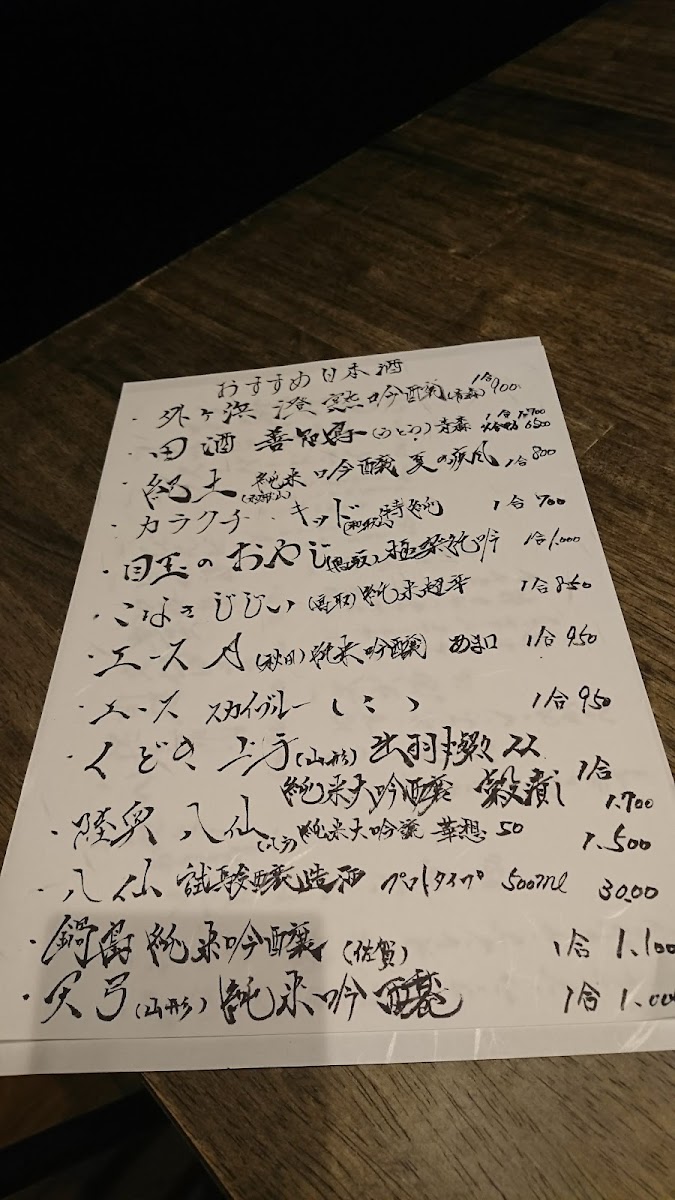 おすすめ日本酒
・外ヶ浜 澄熊 吟醸(青森) 1合 900
・田酒 善知鳥(うとう)青森 1合 1.700
6500
・紀土(和歌山)純米吟醸 夏の疾風 1合 800
・カラクチ キッド(和歌山)特純 1合 700
・目玉のおやじ(鳥取) 1合 1.000
・こなきじじい(鳥取)純米超辛 1合 850
・エース 月(秋田)純米吟醸 あま口 1合 950
・エース スカイブルー ( 〃 ) 1合 950
・くどき上手(山形)出羽燦々 22
純米大吟醸 穀潰し 1合 1.700
・陸奥八仙(八戸)純米大吟醸 華想い 50 1.500
・八仙 試験醸造酒 プロトタイプ 500ml 3000
・鍋島 純米吟醸 (佐賀) 1合 1.100
・天弓(山形)純米吟醸 1合 1.00